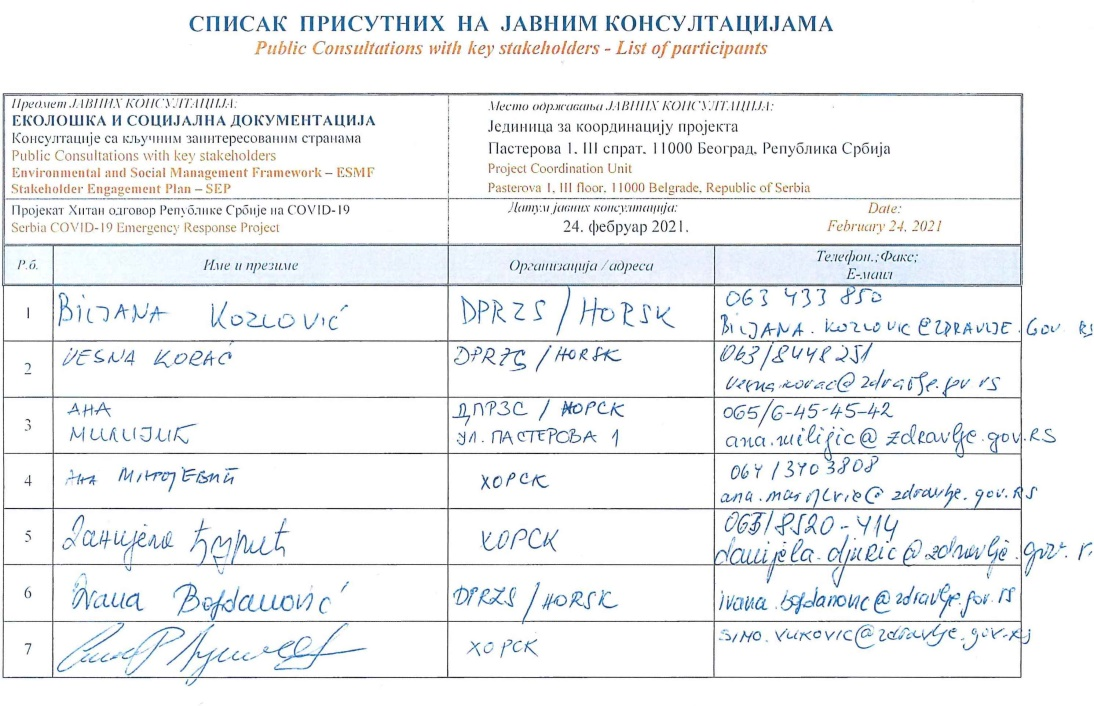 СПИСАК ПРИСУТНИХ НА ЈАВНИМ КОНСУЛТАЦИЈАМА
Public Consultations with key stakeholders - List of participants
Предмет ЈАВНИХ КОНСУЛТАЦИЈА:
ЕКОЛОШКА И СОЦИЈАЛНА ДОКУМЕНТАЦИЈА
Консултације са кључним заинтересованим странама
Public Consultations with key stakeholders
Environmental and Social Management Framework – ESMF
Stakeholder Engagement Plan – SEP
Место одржавања ЈАВНИХ КОНСУЛТАЦИЈА:
Јединица за координацију пројекта
Пастерова 1, III спрат, 11000 Београд, Република Србија
Project Coordination Unit
Pasterova 1, III floor, 11000 Belgrade, Republic of Serbia
Пројекат Хитан одговор Републике Србије на COVID-19
Serbia COVID-19 Emergency Response Project
Датум јавних консултација:
24. фебруар 2021.
Date:
February 24, 2021
Р.б.
Име и презиме
Организација / адреса
Телефон.;Факс;
Е-маил
1
BILJANA KOZLOVIĆ
DPRZS / HORSK
063 433 850
BILJANA.KOZLOVIC@ZDRAVLJE.GOV RS
2
VESNA KORAĆ
DPRZS / HORSK
063/8448251
vesna.korac@zdravlje.gov rs
3
АНА
МИЛИЈИЋ
ДПРЗС / ХОРСК
УЛ. ПАСТЕРОВА 1
065/6-45-45-42
ana.milijic@zdravlje.gov.RS
4
АНА
ХОРСК
064/3703808
5
Данијела Ђурић
ХОРСК
065/8520-414
danijela.djuric@zdravlje.gov.r
6
Ivana Bogdanović
DPRZS / HORSK
ivana.bogdanovic@zdravlje.gov.rs
7
ХОРСК
SINO.VUKOVIC@zdravlje.gov.rs